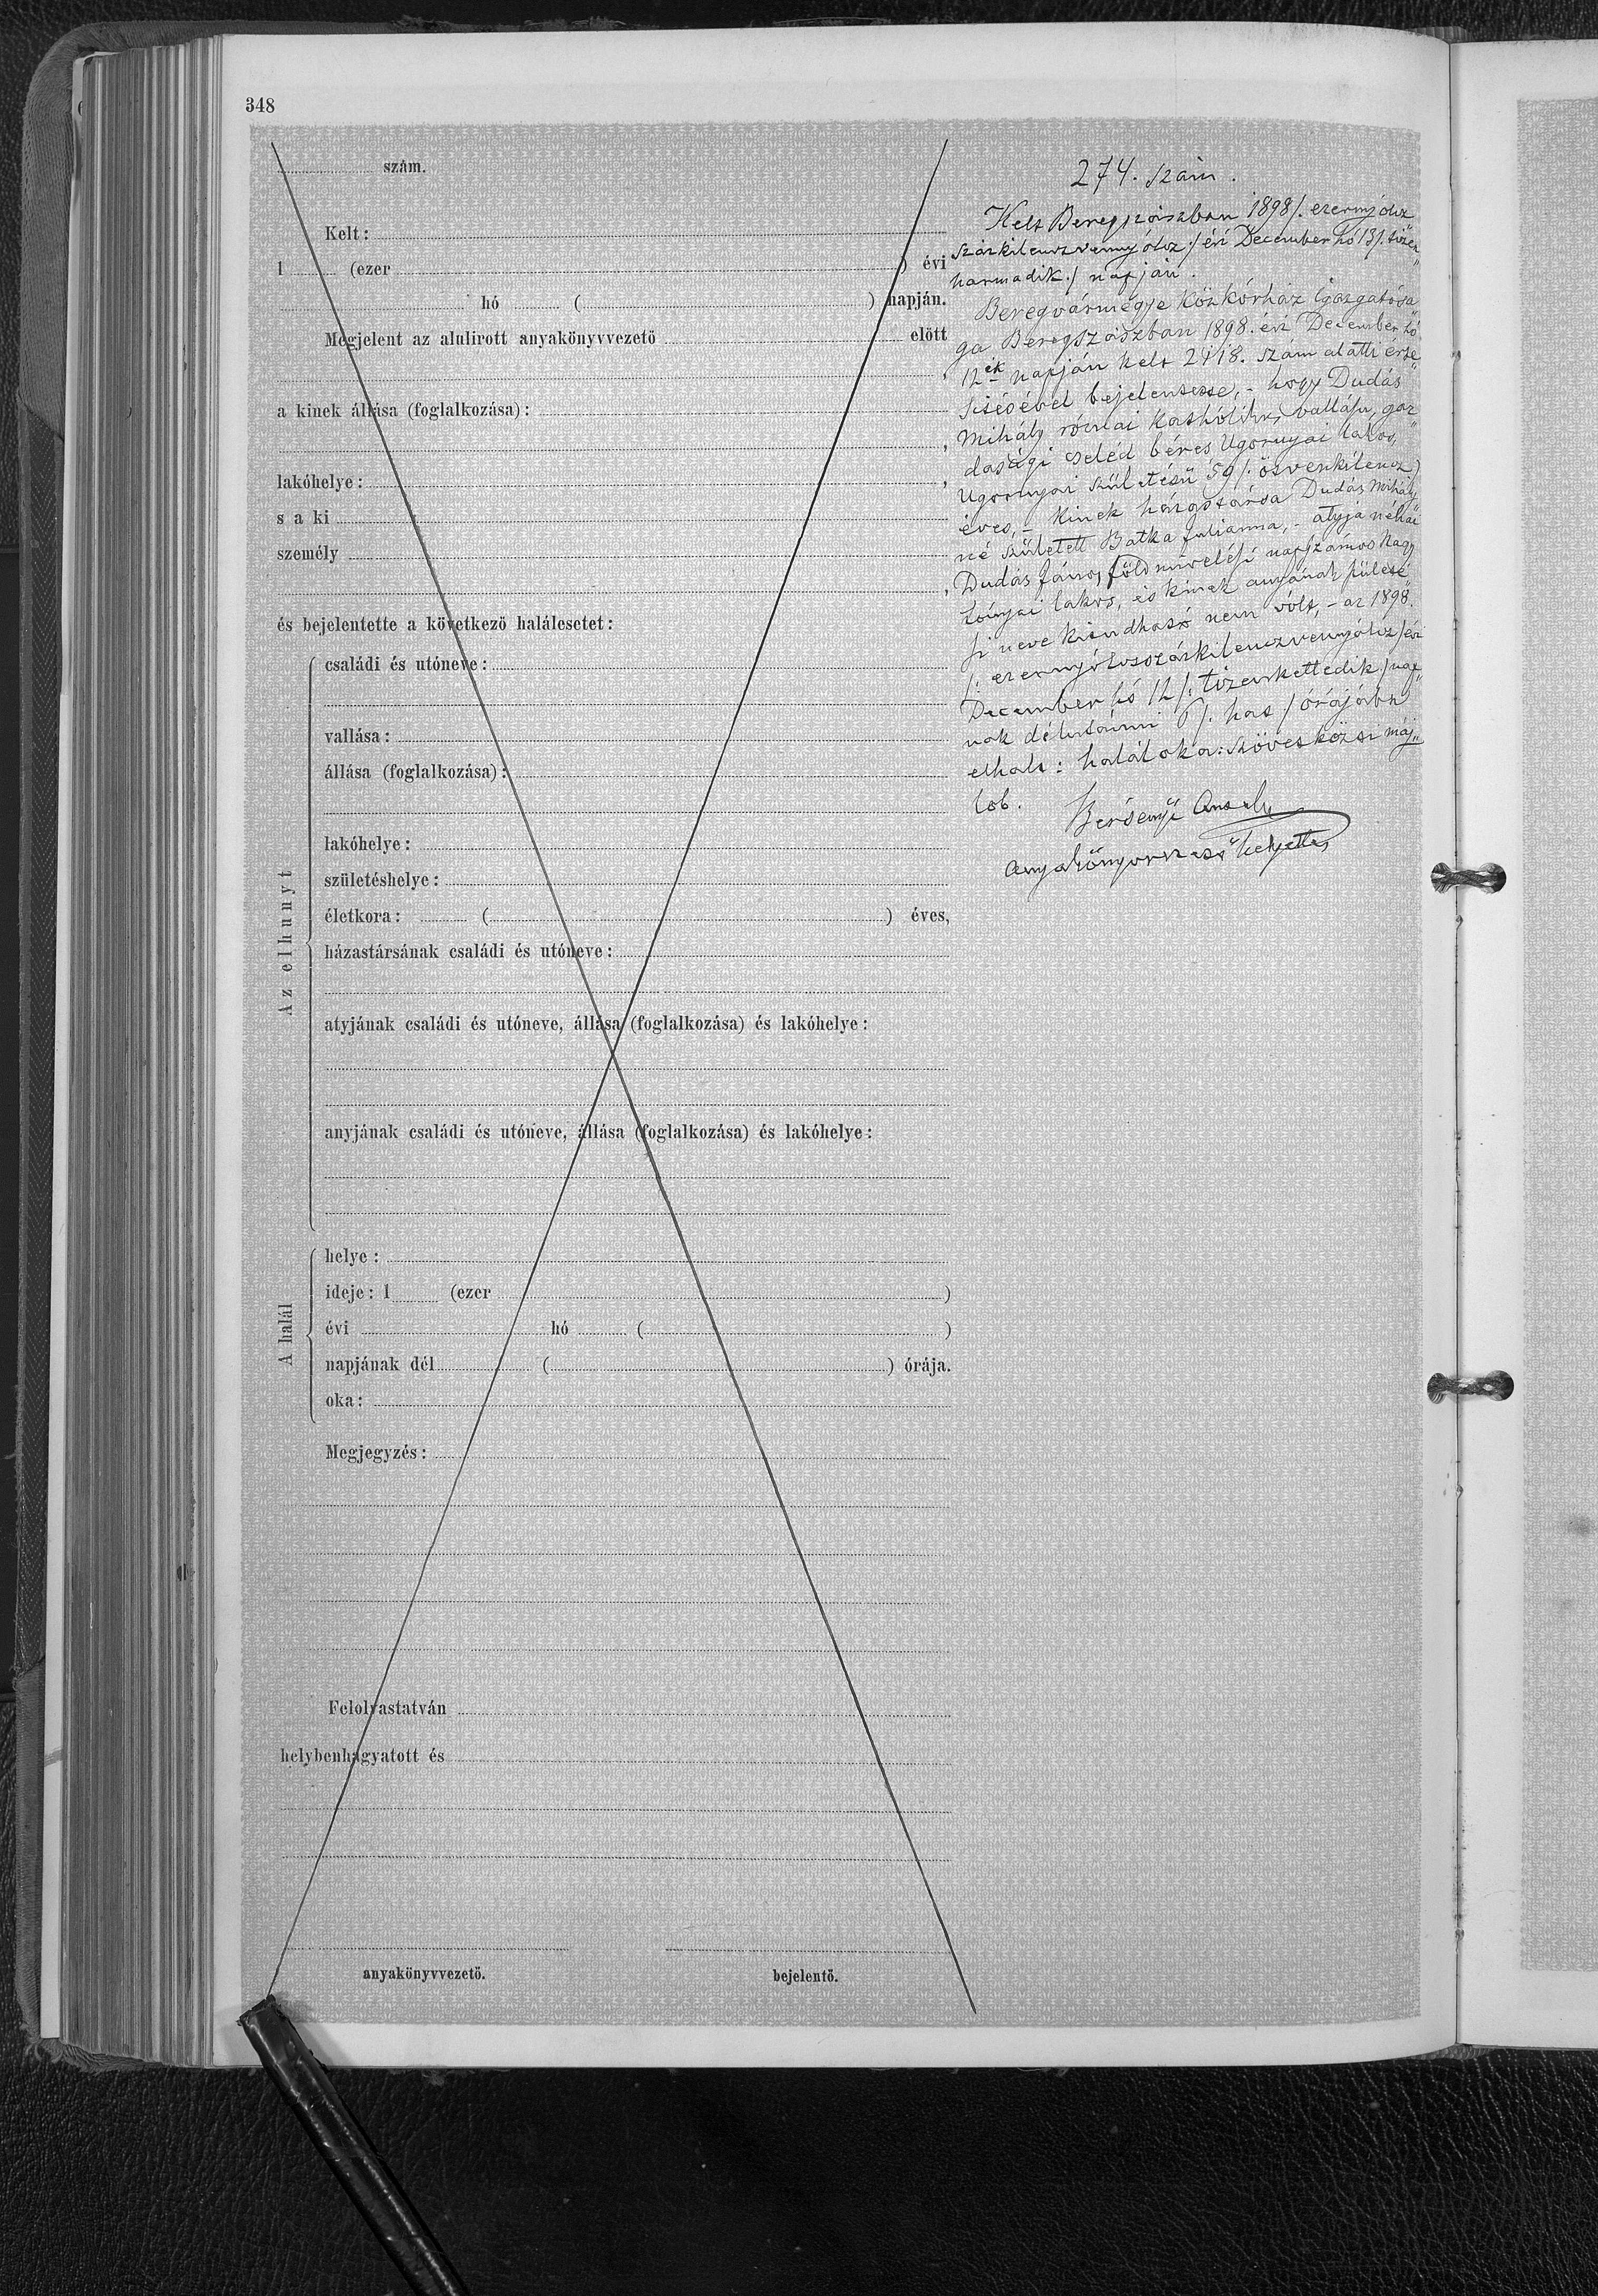 348
szám.
Kelt:
1 (ezer ) évi
hó ( ) napján.
Megjelent az alulirott anyakönyvvezető előtt
,
a kinek állása (foglalkozása):
,
lakóhelye: ,
s a ki
személy
,
és bejelentette a következő halálesetet:
Az elhunyt
családi és utóneve:
vallása:
állása (foglalkozása):
lakóhelye:
születéshelye:
életkora: ( ) éves,
házastársának családi és utóneve:
atyjának családi és utóneve, állása (foglalkozása) és lakóhelye:
anyjának családi és utóneve, állása (foglalkozása) és lakóhelye:
A halál
helye:
ideje: 1 (ezer )
évi hó ( )
napjának dél ( ) órája.
oka:
Megjegyzés:
Felolvastatván
helybenhagyatott és
anyakönyvvezető. bejelentő.
274. szám.
Kelt Beregszászban 1898 /. ezernyólcz
százkilenczvennyólcz ./ évi December hó 13 /. tizen"
harmadik ./ napján.
Beregvármegye Közkórház Igazgatósá"
ga Beregszászban 1898. évi December hó
12ek napján kelt 2418. szám alatti érte"
sitésével bejelentette, - hogy Dudás
Mihály római katholikus vallásu, gaz"
dasági cseléd béres Ugornyai lakos,
Ugornyai születésü 59 /. ötvenkilencz /
éves, - kinek házastársa Dudás Mihály
né született Batka Julianna, - atyja néhai
Dudás János földmivelési napszámos Nagy
lónyai lakos, és kinek anyjának születé"
si neve kitudható nem vólt, - az 1898.
/: ezernyólczszázkilenczvennyólcz / évi
December hó 12 /: tizenkettedik / nap"
nak délutánni 6 /. hat / órájába
elhalt: halál oka: szövetközi máj"
lob.
Anyakönyvvezető helyettes